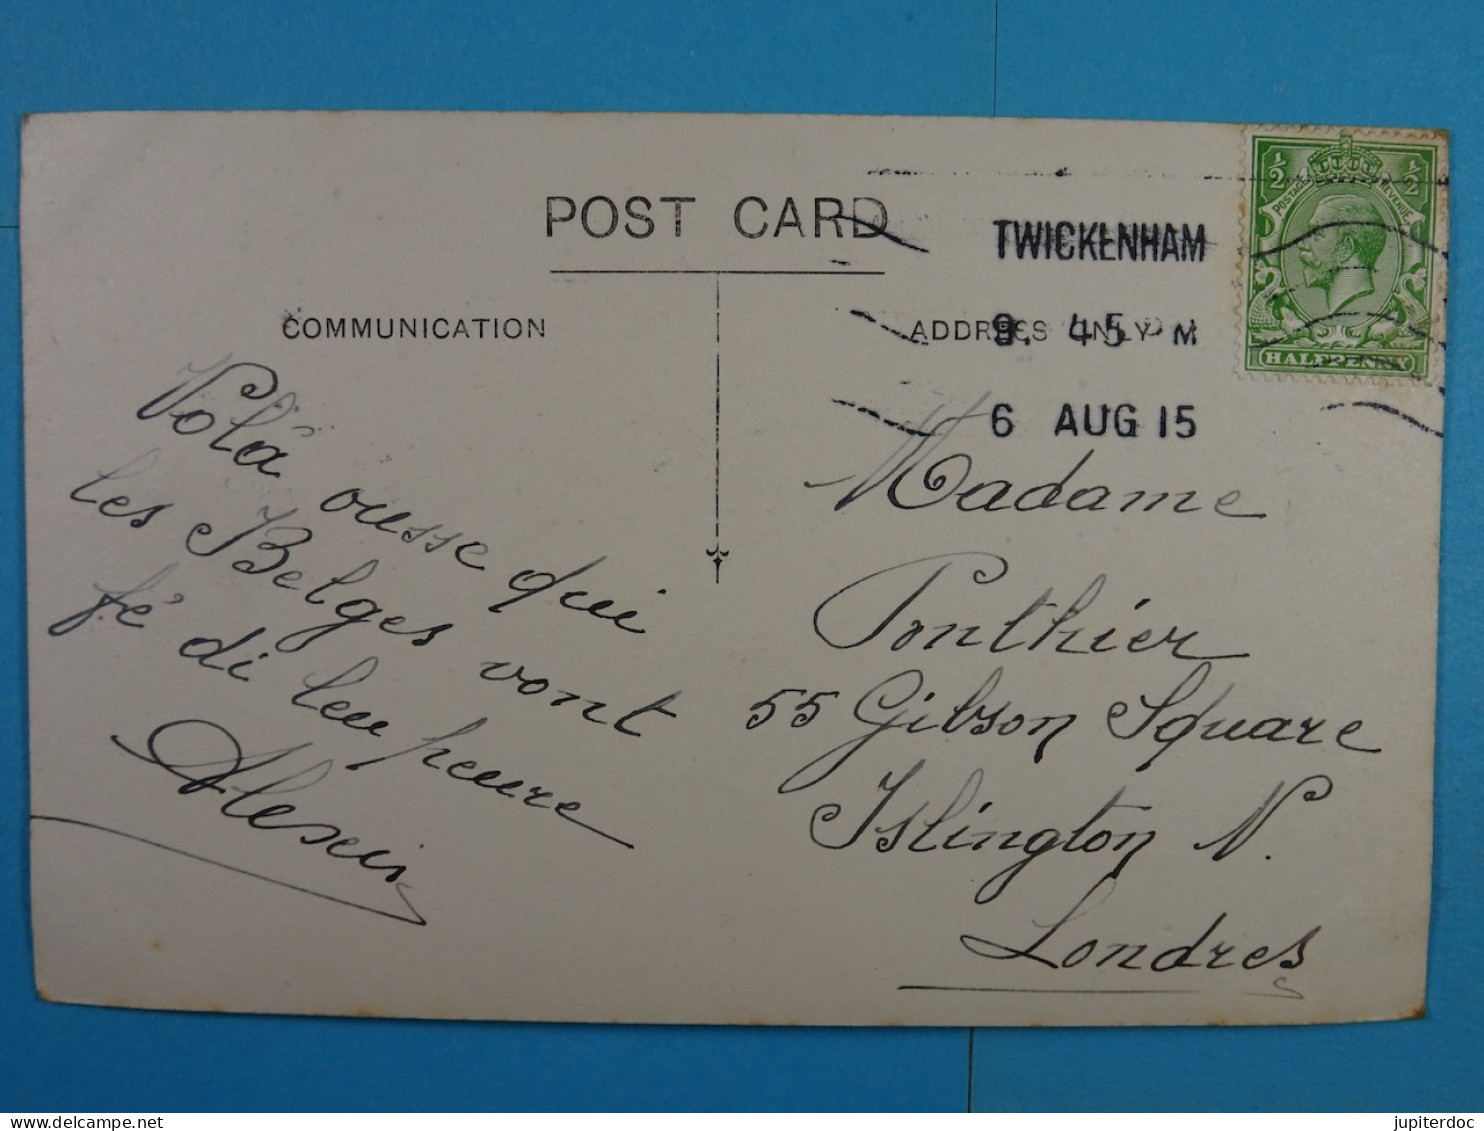 POST CARD
COMMUNICATION
ADDRESS ONLY
TWICKENHAM
9. 45 PM
6 AUG 15
½ ½
POSTAGE REVENUE
HALFPENNY
Volà ousse qui
les Belges vont
fé di leu peure
Alexis
Madame
Ponthier
55 Gibson Square
Islington N.
Londres
jupiterdoc